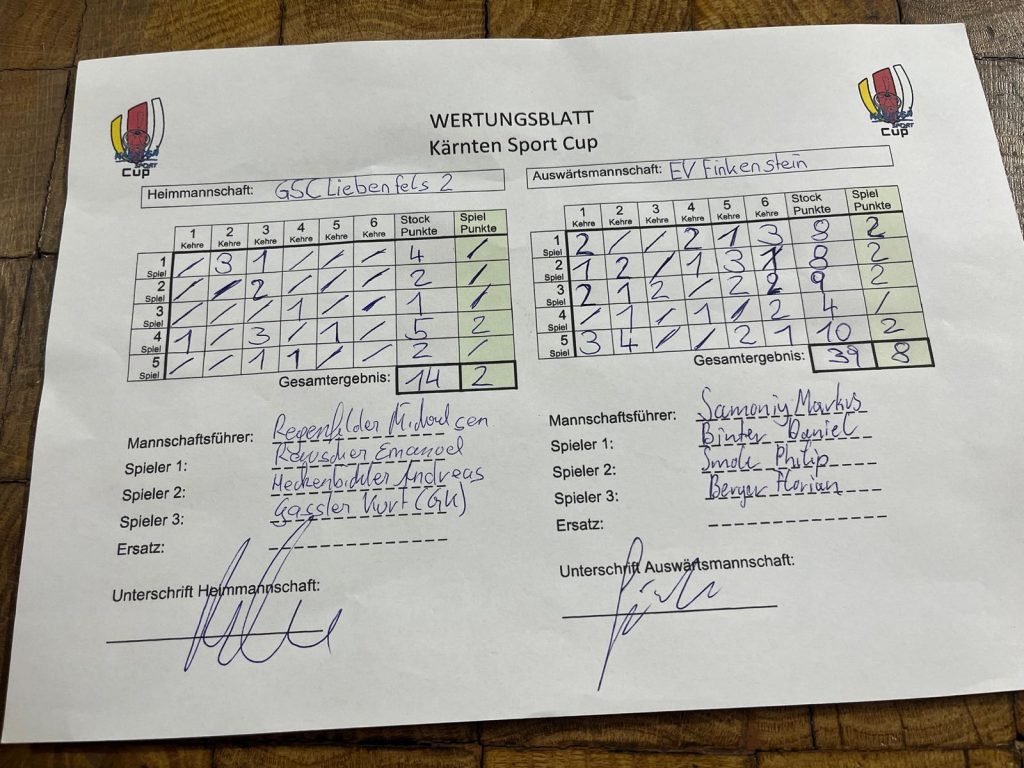 WERTUNGSBLATT
Kärnten Sport Cup
SPORT
Cup
SPORT
Cup
Heimmannschaft: GSC Liebenfels 2
1 Kehre 2 Kehre 3 Kehre 4 Kehre 5 Kehre 6 Kehre Stock Punkte Spiel Punkte
1 Spiel / 3 1 / / / 4 /
2 Spiel / / 2 / / / 2 /
3 Spiel / / / 1 / / 1 /
4 Spiel 1 / 3 / 1 / 5 2
5 Spiel / / 1 1 / / 2 /
Gesamtergebnis: 14 2
Mannschaftsführer:
Spieler 1: Rauscher Emanuel
Spieler 2: Heckenbichler Andreas
Spieler 3: Gassler Kurt (GK)
Ersatz:
Unterschrift Heimmannschaft:
Auswärtsmannschaft: EV Finkenstein
1 Kehre 2 Kehre 3 Kehre 4 Kehre 5 Kehre 6 Kehre Stock Punkte Spiel Punkte
1 Spiel 2 / / 2 1 3 8 2
2 Spiel 1 2 / 1 3 1 8 2
3 Spiel 2 1 2 / 2 2 9 2
4 Spiel / 1 / 1 / 2 4 /
5 Spiel 3 4 / / 2 1 10 2
Gesamtergebnis: 39 8
Mannschaftsführer: Samoniy Markus
Spieler 1: Binter Daniel
Spieler 2: Smole Philip
Spieler 3: Berger Florian
Ersatz:
Unterschrift Auswärtsmannschaft: